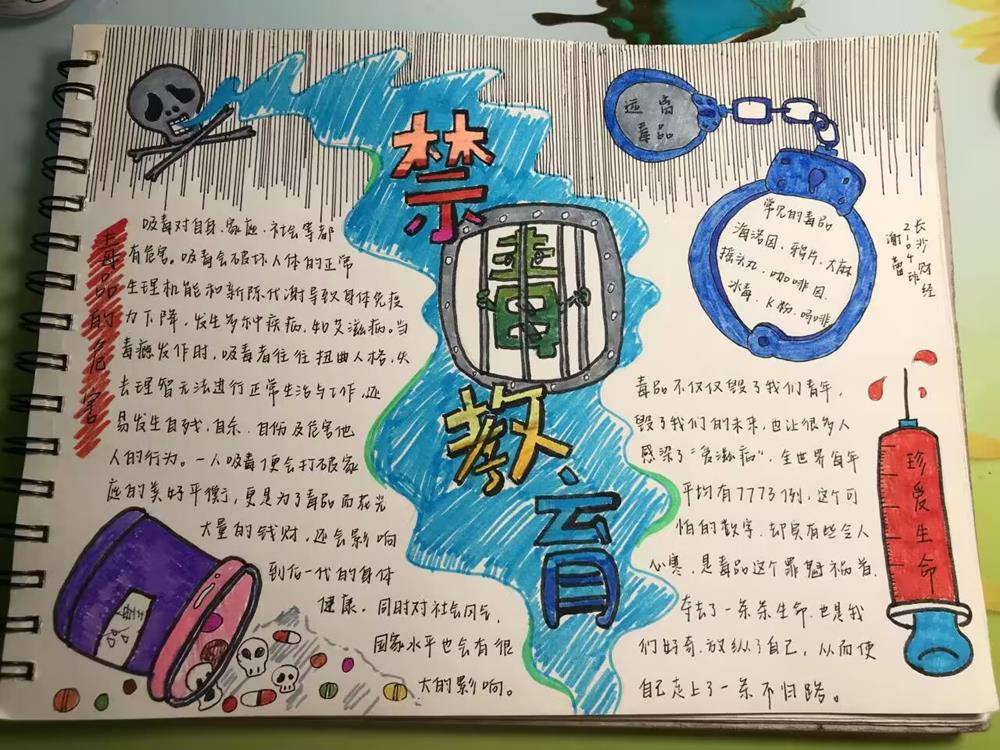 禁毒教育
远离
毒品
常见的毒品
海洛因、鸦片、大麻
摇头丸、咖啡因、
冰毒、K粉、吗啡
长沙财经
2204班
谢蕾
毒品的危害
吸毒对自身、家庭、社会等都
有危害。吸毒会破坏人体的正常
生理机能和新陈代谢导致身体免疫
力下降,发生多种疾病,如艾滋病。当
毒瘾发作时,吸毒者往往扭曲人格,失
去理智无法进行正常生活与工作,还
易发生自残,自杀、自伤及危害他
人的行为。一人吸毒便会打破家
庭的美好平衡,更是为了毒品而花光
大量的钱财,还会影响
到后一代的身体
健康,同时对社会风气,
国家水平也会有很
大的影响。
毒品
毒品不仅仅毁了我们青年,
毁了我们的未来,也让很多人
感染了“爱滋病”,全世界每年
平均有77731例,这个可
怕的数字,却实有些令人
心寒,是毒品这个罪魁祸首,
夺去了一条条生命,也是我
们好奇,放纵了自己,从而使
自己走上了一条不归路。
珍爱生命